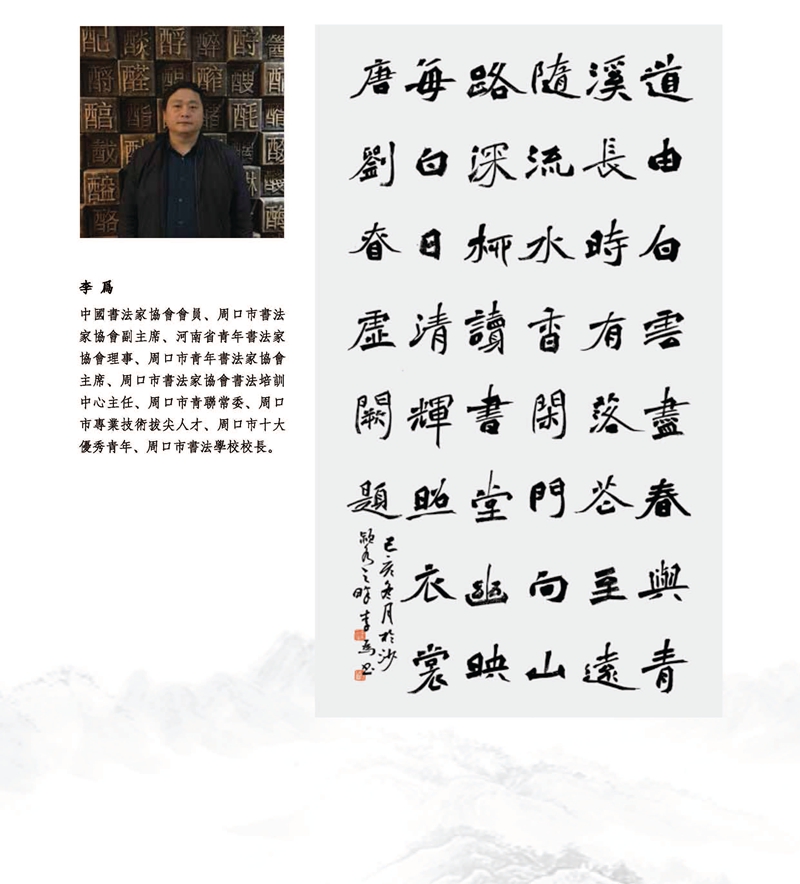 李 爲
中國書法家協會會員、周口市書法
家協會副主席、河南省青年書法家
協會理事、周口市青年書法家協會
主席、周口市書法家協會書法培訓
中心主任、周口市青聯常委、周口
市專業技術拔尖人才、周口市十大
優秀青年、周口市書法學校校長。
道由白雲盡春與青
溪長時有落花至遠
隨流水香閑門向山
路深柳讀書堂幽映
每白日清輝照衣裳
唐劉眘虛闕題
己亥冬月於沙
潁水之畔李爲書